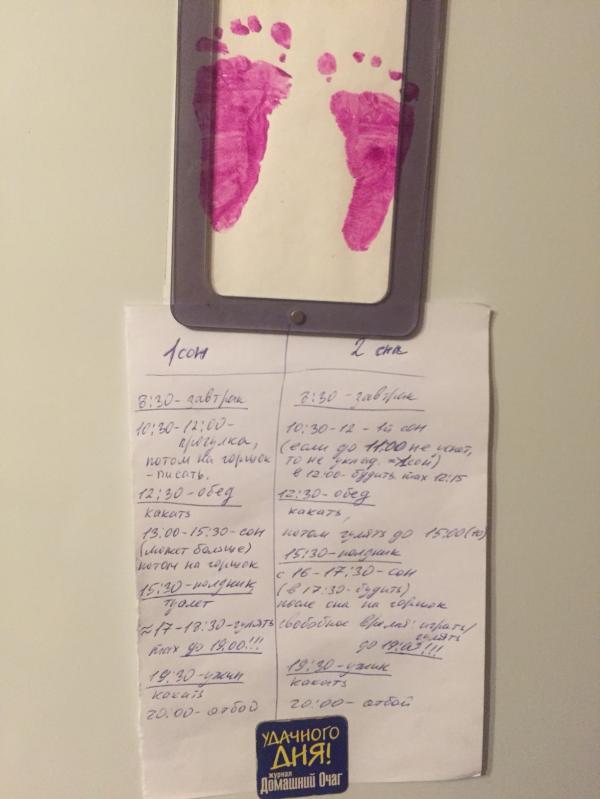 1 сон
8:30 - завтрак
10:30 - 12:00 -
прогулка,
потом на горшок
- писать.
12:30 - обед
какать
13:00 - 15:30 - сон
(может больше)
потом на горшок
15:30 - полдник
туалет
≈17 - 18:30 - гулять
max до 19:00!!!
19:30 - ужин
какать
20:00 - отбой
2 сна
8:30 - завтрак
10:30 - 12 - 1й сон
(если до 11:00 не уснёт,
то не уклад. = 1 сон)
в 12:00 - будить max 12:15
12:30 - обед
какать,
потом гулять до 15:00
15:30 - полдник
с 16 - 17:30 - сон
(в 17:30 - будить)
после сна на горшок
свободное время: играть/
гулять
до 19:00!!!
19:30 - ужин
какать
20:00 - отбой
УДАЧНОГО
ДНЯ!
журнал
Домашний Очаг